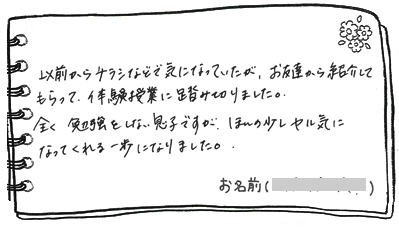 以前からチラシなどで気になっていたが、お友達から紹介して
もらって、体験授業に踏み切りました。
全く勉強をしない息子ですが、ほんの少しヤル気に
なってくれる一歩になりました。
お名前( )